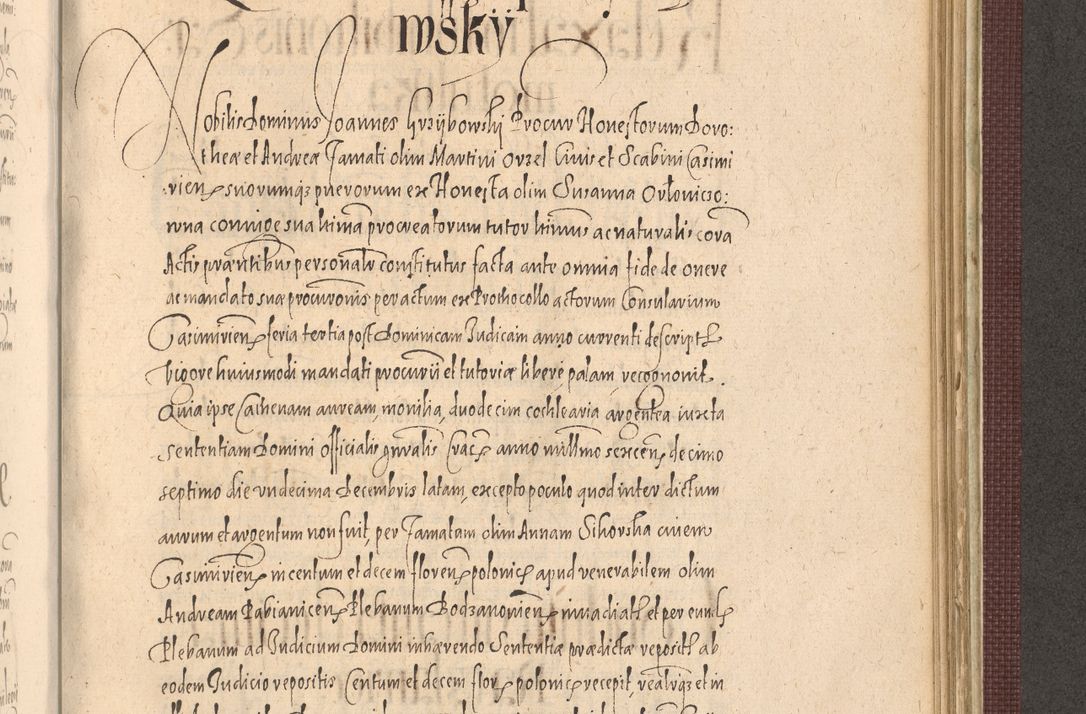 wskÿ
Nobilis Dominus Joannes Grzÿbowskÿ Procur Honestorum Doro:
theæ et Andreæ famati olim Martini Orzel Civis et Scabini Casimi
rien suorumq puerorum ex Honesta olim Susanna Orlowiczo:
wna coniuge sua ltima procreatorum tutor ltimus ac naturalis corā
Actis præntibus personalr constitutus facta ante omnia fide de onere
ac mandato suæ procuronis peractum ex Prothocollo actorum Consularium
Casimirien feria tertia post Dominicam Judicam anno currenti descript
vigore huiusmodi mandati procurÿ et tutoriæ libere palam recognovit.
Quia ipse Cathenam auream, monilia, duodecim cochlearia argentea iuxta
sententiam Domini officialis gnralis Crac anno millmo sexcen decimo
septimo die undecima Decembris latam, excepto poculo quod inter dictum
aurum et argentum non fuit, per famatam olim Annam Sikorska civem
Casimirien in centum et decem floren polonic apud venerabilem olim
Andream Pabianicen Plebanum Bodzanovien invadiat et per eund
Plebanum ad Judicium Domini inhærendo Sententiæ prædictæ reposit ab
eodem Judicio repositis Centum et decem flor polonic recepit, realrq et in